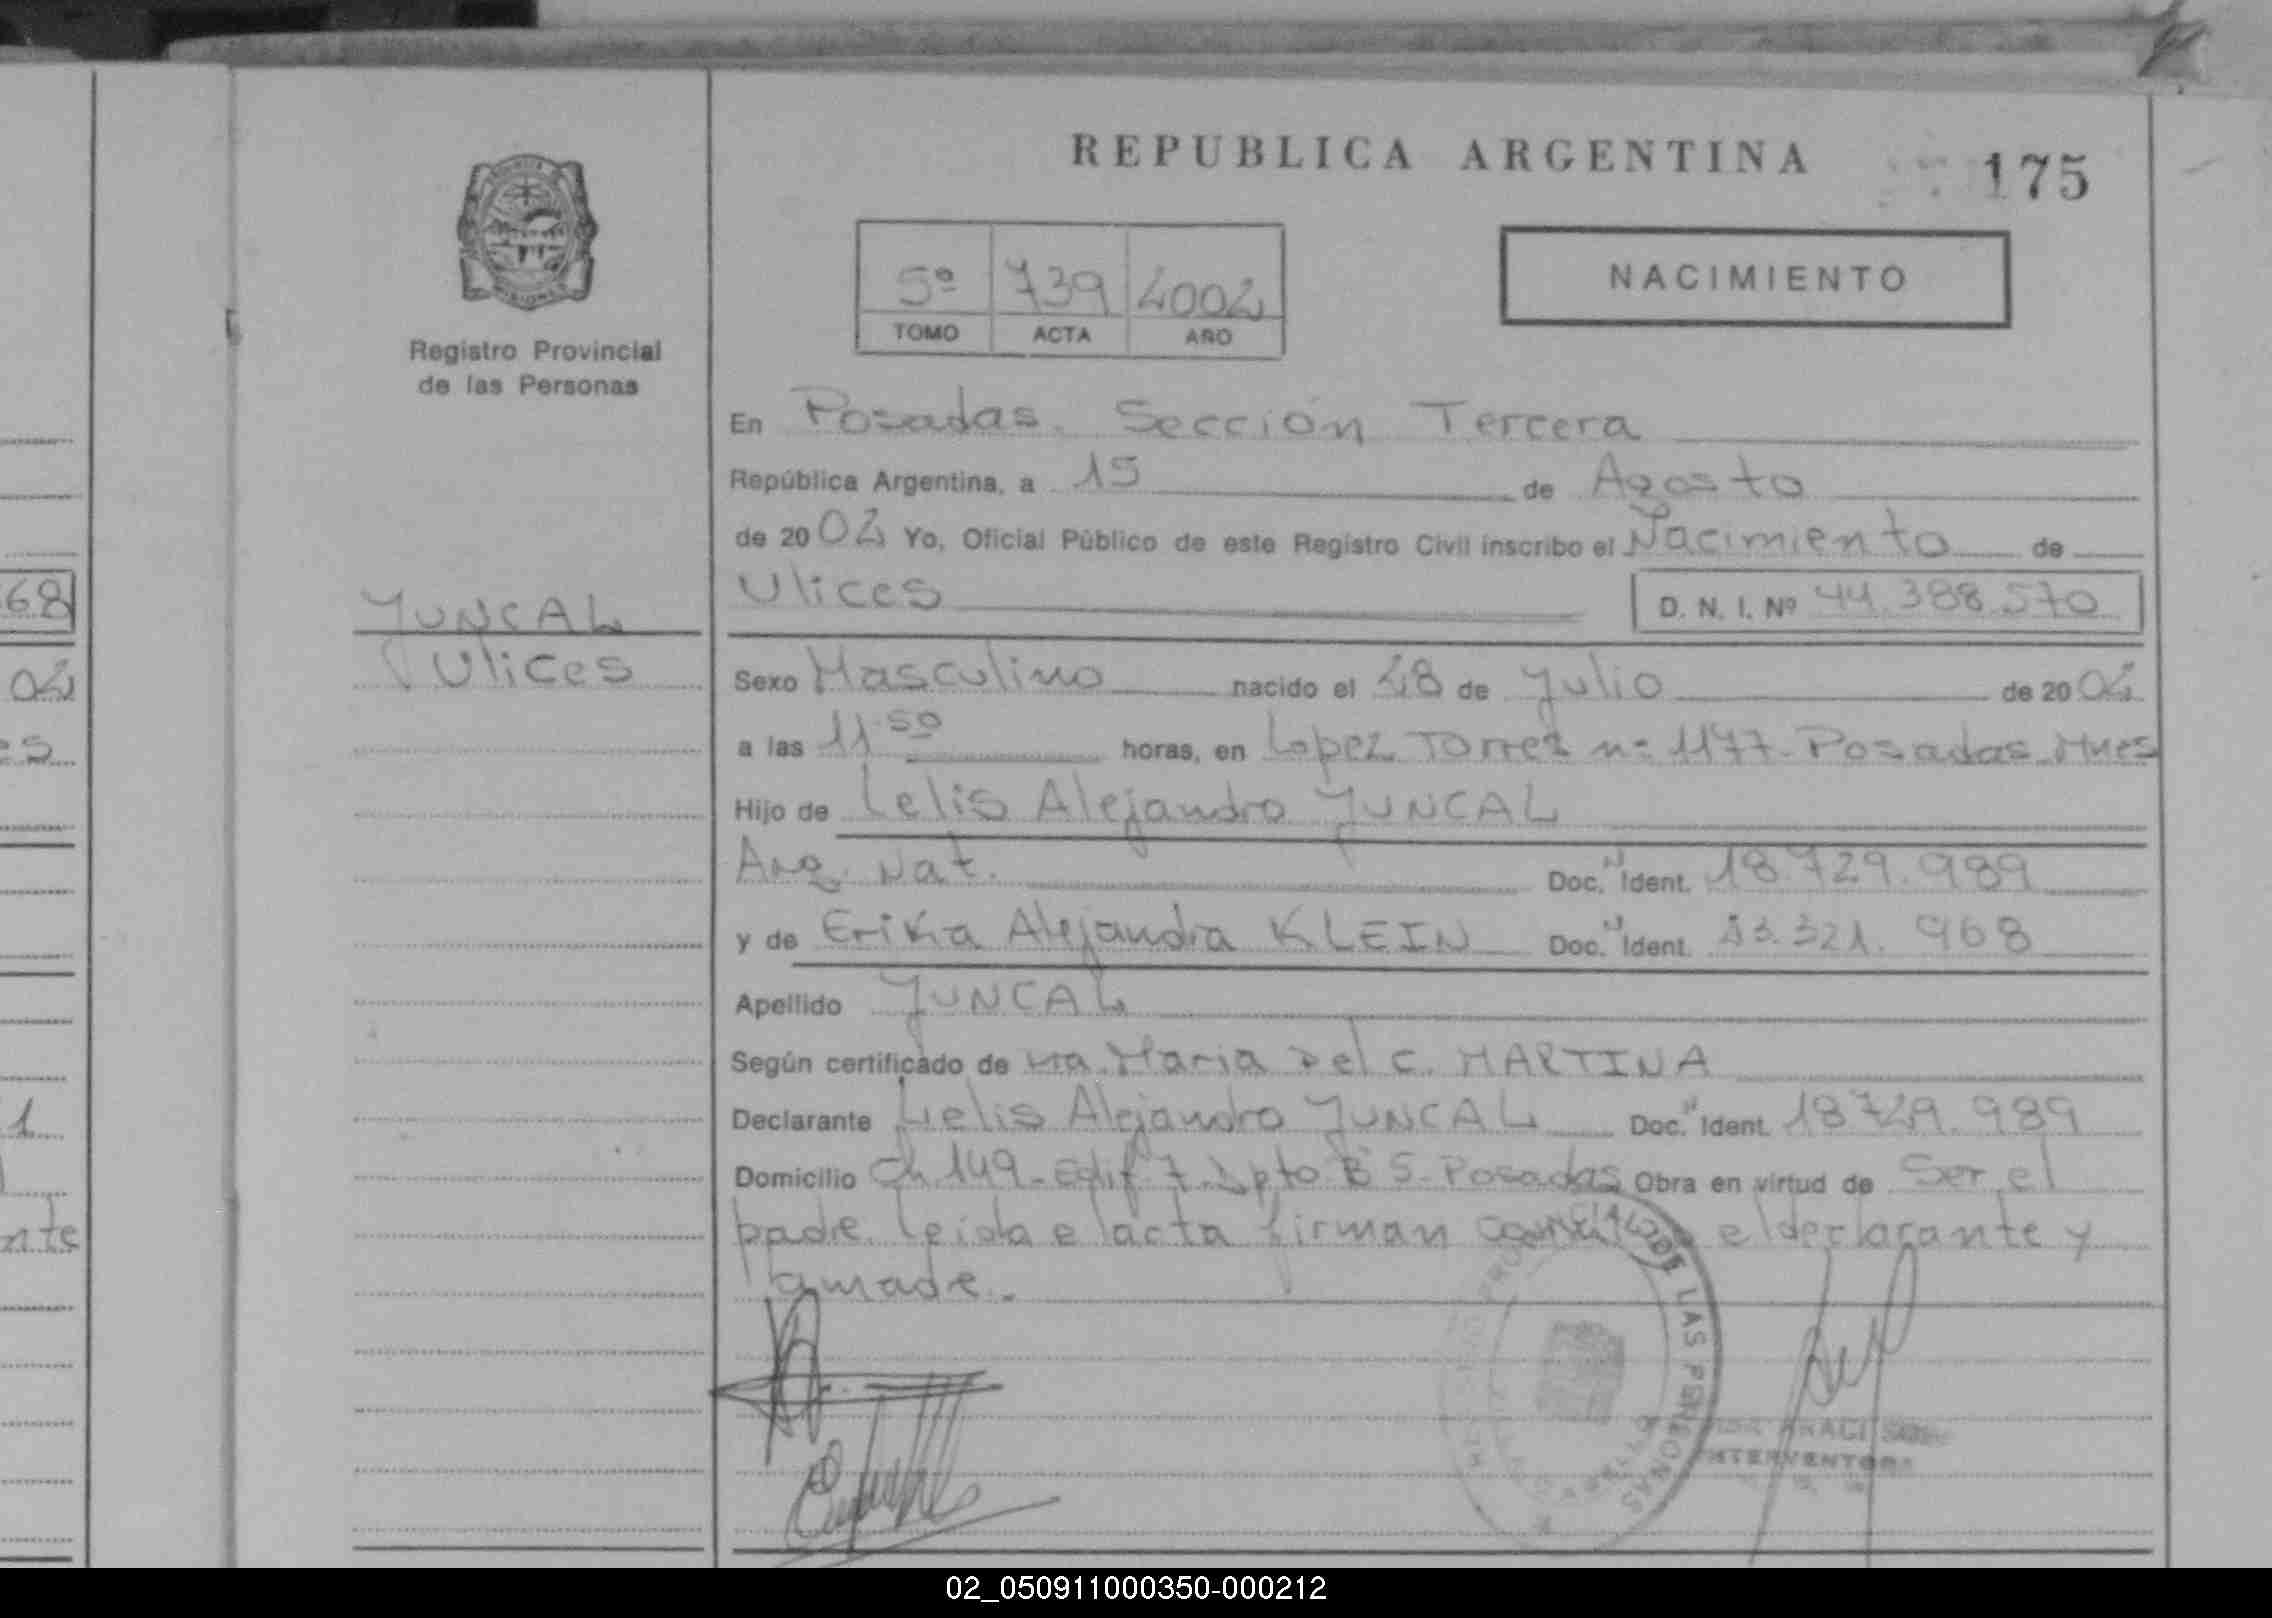 REPUBLICA ARGENTINA
175
5º 739 2002
TOMO ACTA AÑO
NACIMIENTO
Registro Provincial
de las Personas
En Posadas. Sección Tercera
República Argentina, a 15 de Agosto
de 2002 Yo, Oficial Público de este Registro Civil inscribo el Nacimiento de
Ulices D. N. I. Nº 44.388.570
YUNCAL
Ulices
Sexo Masculino nacido el 28 de Julio de 2002
a las 11.50 horas, en Lopez Torres nº 1177. Posadas. Mnes
Hijo de Lelis Alejandro YUNCAL
Arg. Nat. Doc. Ident. 18.729.989
y de Erika Alejandra KLEIN Doc. Ident. 23.321.968
Apellido YUNCAL
Según certificado de Ma. Maria Del C. MARTINA
Declarante Lelis Alejandro YUNCAL Doc. Ident. 18729.989
Domicilio Ch. 149. Edif 7. Dpto B 5. Posadas Obra en virtud de Ser el
padre. leida el acta firman el declarante y
la madre.
DE LAS PERSONAS
INTERVENTORA
68
02
es
1
nte
02_050911000350-000212